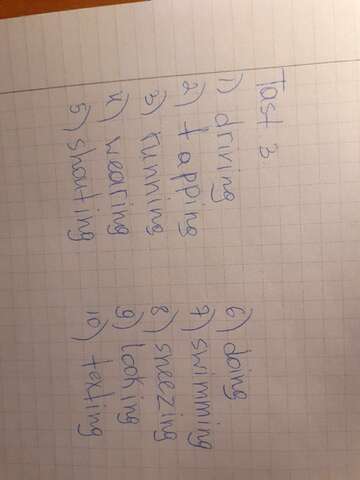 Tast 3
1) driving
2) tapping
3) running
4) wearing
5) shouting
6) doing
7) swimming
8) sneezing
9) looking
10) texting